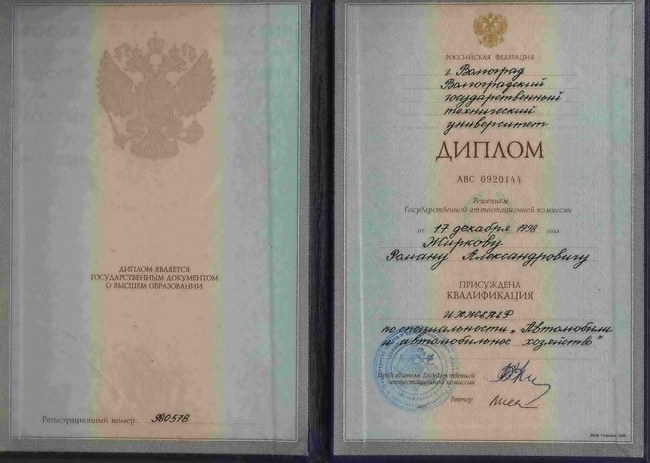 ДИПЛОМ ЯВЛЯЕТСЯ
ГОСУДАРСТВЕННЫМ ДОКУМЕНТОМ
О ВЫСШЕМ ОБРАЗОВАНИИ
Регистрационный номер ЯВ0578
РОССИЙСКАЯ ФЕДЕРАЦИЯ
г. Волгоград
Волгоградский
государственный
технический
университет
ДИПЛОМ
АВС 0920144
Решением
Государственной аттестационной комиссии
от 17 декабря 1998 года
Жиркову
Роману Александровичу
ПРИСУЖДЕНА
КВАЛИФИКАЦИЯ
ИНЖЕНЕР
по специальности „Автомобили
и автомобильное хозяйство"
Председатель Государственной
аттестационной комиссии
Ректор